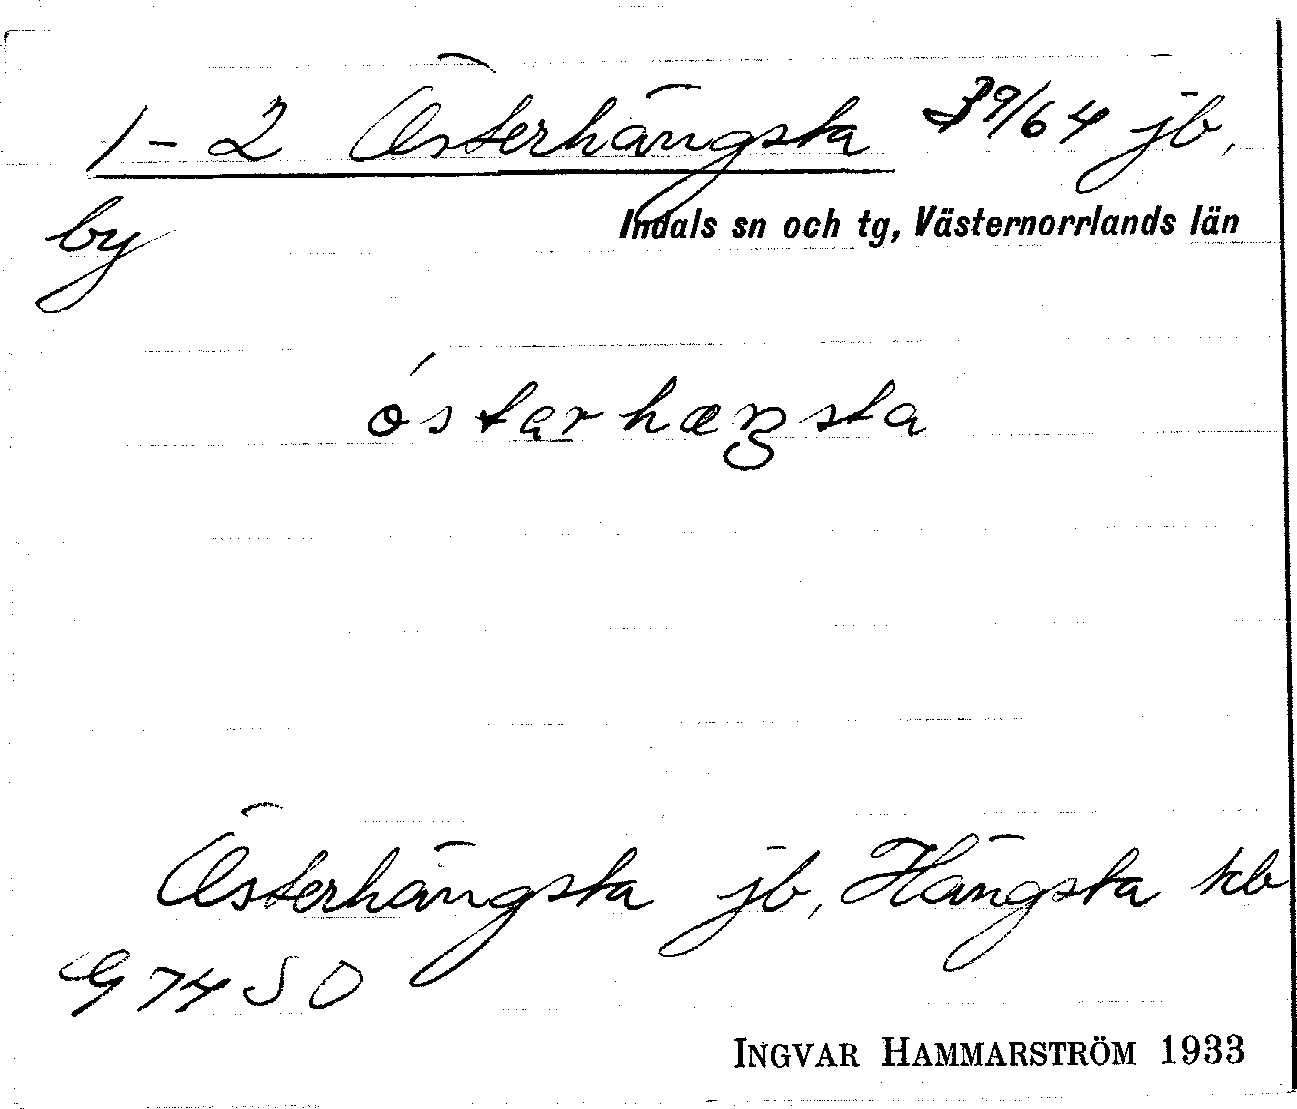 1-2 Österhängsta 39/64 jb,
by
Indals sn och tg, Västernorrlands län
óstarhæŋsta
Österhängsta jb, Hängsta kb
G 74 SO
INGVAR HAMMARSTRÖM 1933